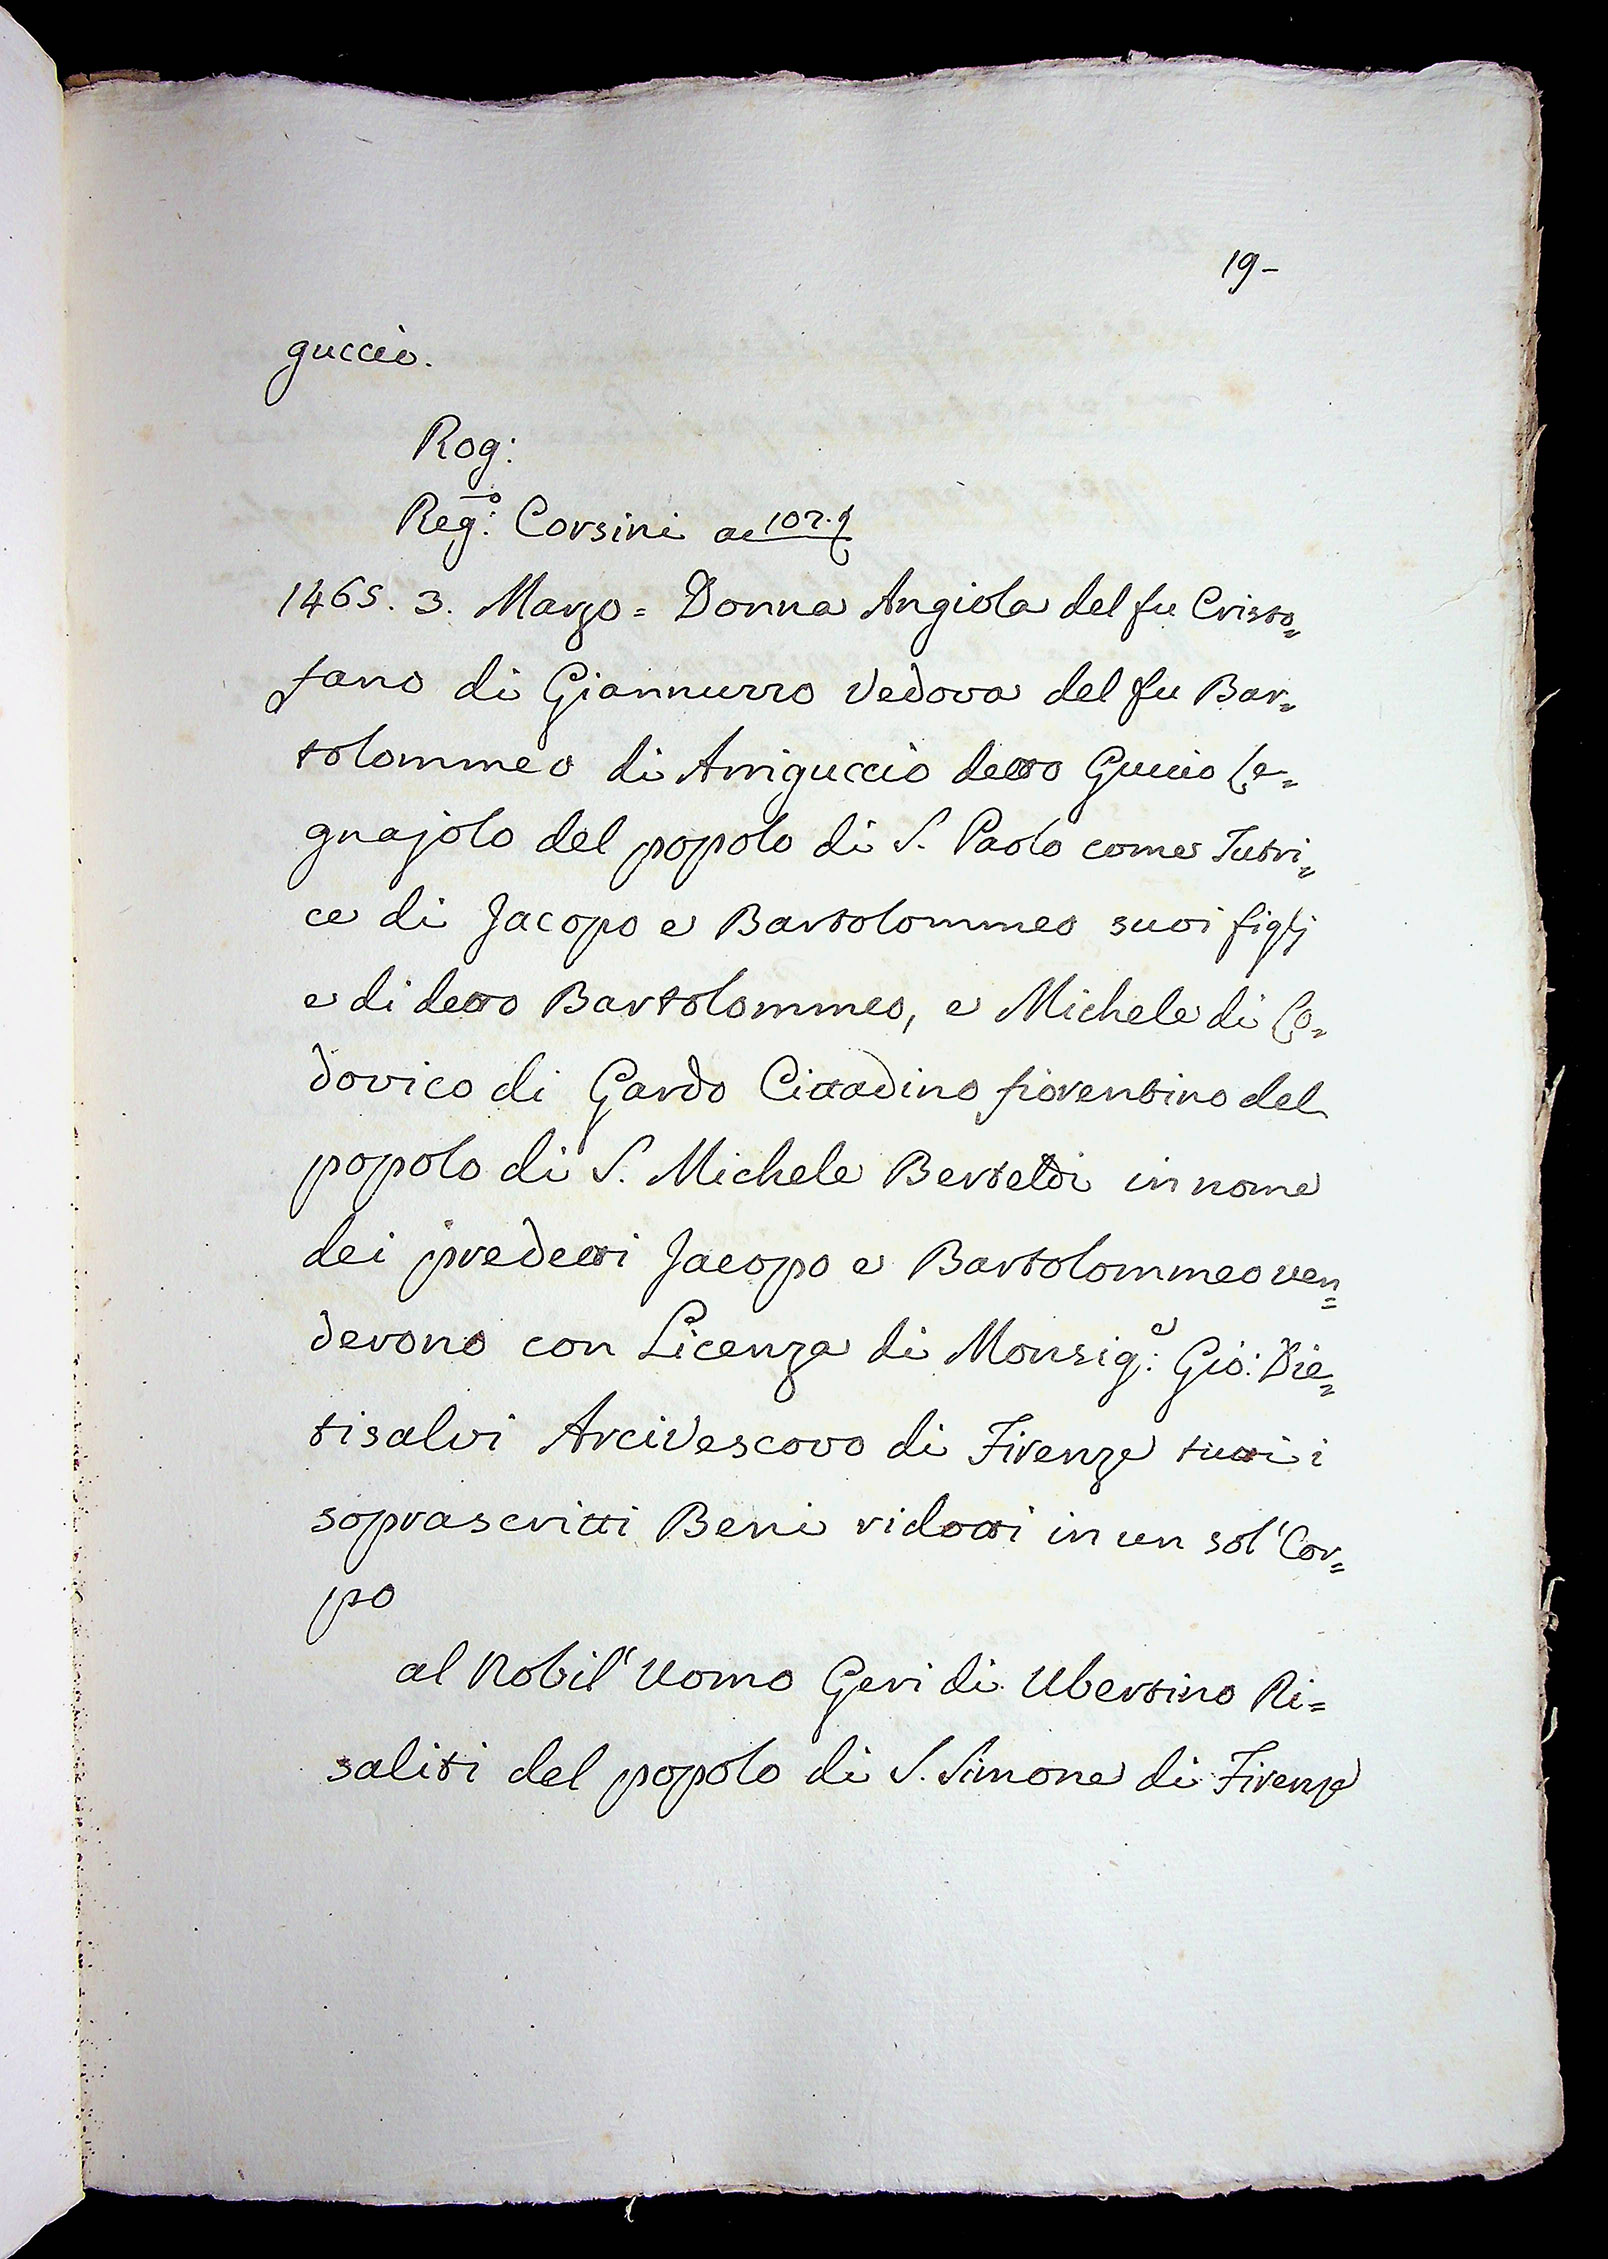 19-
guccio.
Rog:
Reg:o Corsini a 107.
1465. 3. Marzo = Donna Angiola del fu Cristo=
fano di Giannuzzo Vedova del fu Bar=
tolommeo di Arriguccio detto Guccio Le=
gnajolo del popolo di S. Paolo come Tutri=
ce di Jacopo e Bartolommeo suoi figlj
e di detto Bartolommeo, e Michele di Lo=
dovico di Gardo Cittadino fiorentino del
popolo di S. Michele Berteldi in nome
dei predetti Jacopo e Bartolommeo ven=
derono con Licenza di Monsig:e Gio: Die=
tisalvi Arcivescovo di Firenze tutti i
soprascritti Beni ridotti in un sol' Cor=
po
al Nobil' Uomo Geri di Ubertino Ri=
saliti del popolo di S. Simone di Firenze